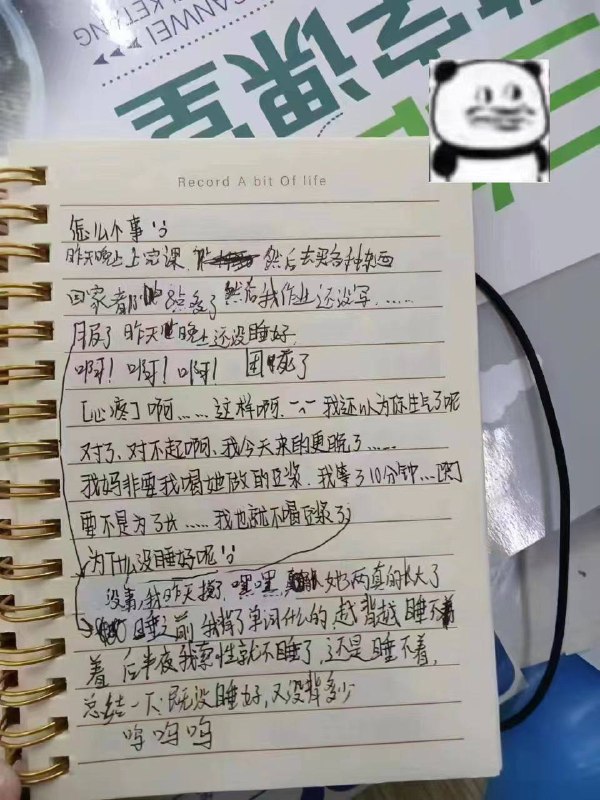 CANWEI
KETING
课堂
Record A bit Of life
怎么个事
昨天晚上上完课, 然后去买各种东西
回家都 点多了 然后我作业还没写……
服了 昨天晚上还没睡好,
啊! 啊! 啊! 困死了
[心疼]啊……这样啊. 我还以为你生气了呢
对了, 对不起啊, 我今天来的更晚了……
我妈非要我喝她做的豆浆, 我等了10分钟…
要不是为了长……我也就不喝豆浆了
为什么没睡好呢
没事, 我昨天 嘿嘿 她两真的 大了
睡之前 我背了单词什么的 越背越睡不着
着 后半夜我索性就不睡了, 还是睡不着,
总结一下: 既没睡好, 又没背多少
呜呜呜